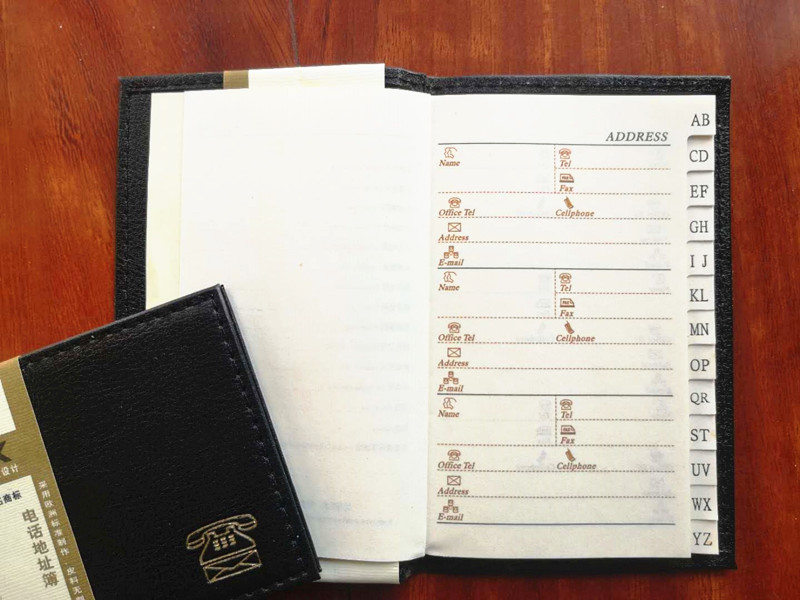 ADDRESS
Name
Tel
Fax
Office Tel
Cellphone
Address
E-mail
Name
Tel
Fax
Office Tel
Cellphone
Address
E-mail
Name
Tel
Fax
Office Tel
Cellphone
Address
E-mail
AB
CD
EF
GH
I J
KL
MN
OP
QR
ST
UV
WX
YZ
设计
商标
电话地址簿
采用欧洲标准制作